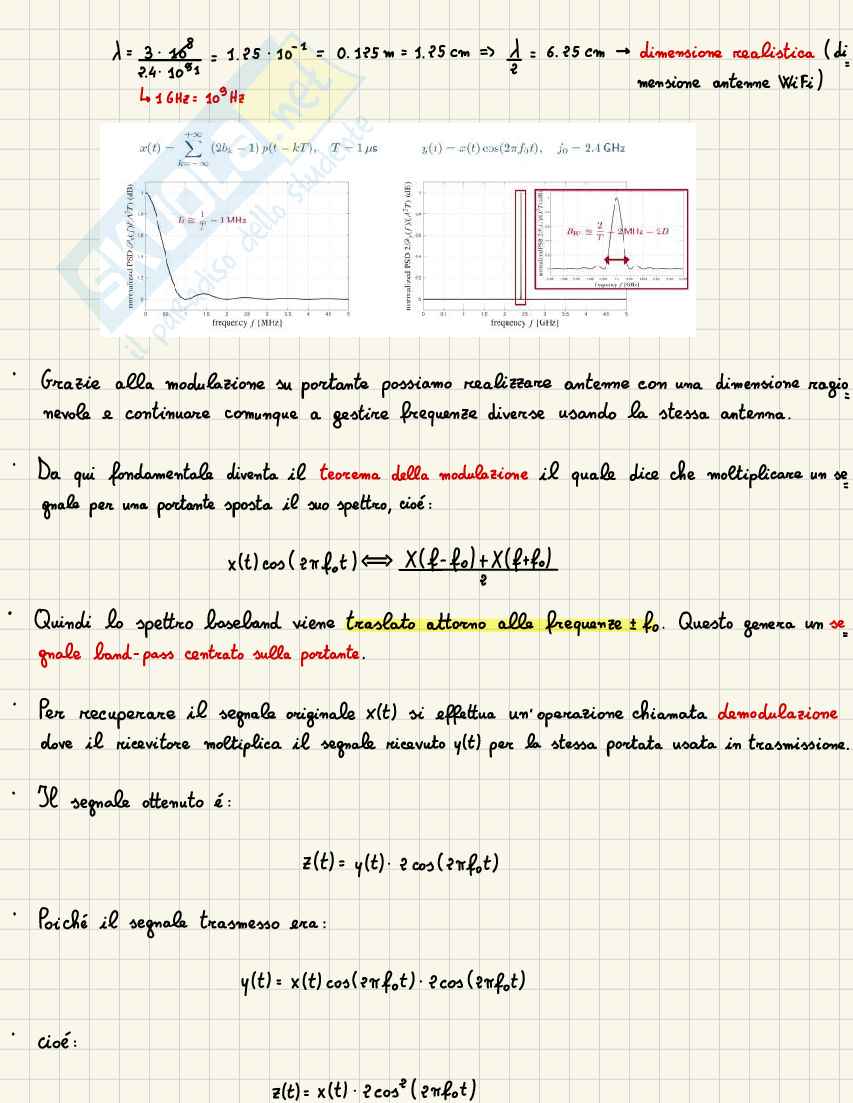 λ = 3 · 10⁸ / 2.4 · 10⁹ 1 = 1.25 · 10⁻¹ = 0.125 m = 1.25 cm => λ/2 = 6.25 cm → dimensione realistica (di
↳ 1 GHz = 10⁹ Hz mensione antenne WiFi)
x(t) = ∑_{k=-∞}^{+∞} (2b_k − 1) p(t − kT), T = 1 μs
y(t) = x(t) cos(2πf₀t), f₀ = 2.4 GHz
B ≅ 1/T = 1 MHz
frequency f [MHz]
B_BP ≅ 2/T = 2 MHz = 2B
frequency f [GHz]
frequency f [GHz]
SKUOLA.net
il paradiso dello studente
· Grazie alla modulazione su portante possiamo realizzare antenne con una dimensione ragio
nevole e continuare comunque a gestire frequenze diverse usando la stessa antenna.
· Da qui fondamentale diventa il teorema della modulazione il quale dice che moltiplicare un se
gnale per una portante sposta il suo spettro, cioé:
x(t) cos(2πf₀t) ⟺ X(f-f₀)+X(f+f₀) / 2
· Quindi lo spettro baseband viene traslato attorno alle frequenze ± f₀. Questo genera un se
gnale band-pass centrato sulla portante.
· Per recuperare il segnale originale x(t) si effettua un'operazione chiamata demodulazione
dove il ricevitore moltiplica il segnale ricevuto y(t) per la stessa portata usata in trasmissione.
· Il segnale ottenuto é:
z(t) = y(t) · 2 cos(2πf₀t)
· Poiché il segnale trasmesso era:
y(t) = x(t) cos(2πf₀t) · 2cos(2πf₀t)
· cioé:
z(t) = x(t) · 2cos²(2πf₀t)